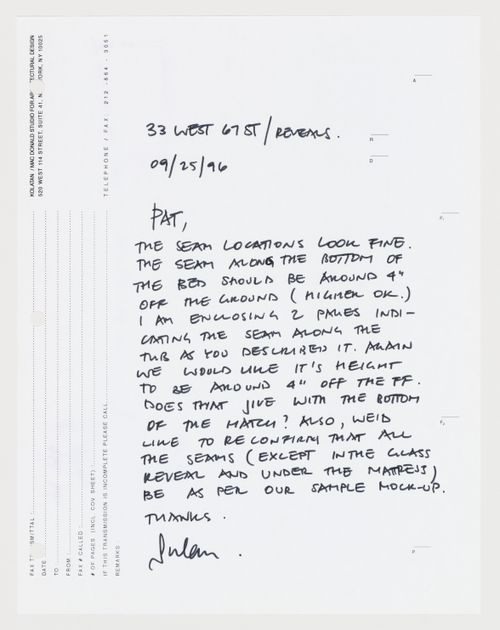 33 WEST 67 ST / REVEALS.
09/25/96
PAT,
THE SEAM LOCATIONS LOOK FINE.
THE SEAM ALONG THE BOTTOM OF
THE BED SHOULD BE AROUND 4"
OFF THE GROUND (HIGHER OK.)
I AM ENCLOSING 2 PAGES INDI-
CATING THE SEAM ALONG THE
TUB AS YOU DESCRIBED IT. AGAIN
WE WOULD LIKE IT'S HEIGHT
TO BE AROUND 4" OFF THE FF.
DOES THAT JIVE WITH THE BOTTOM
OF THE HATCH? ALSO, WE'D
LIKE TO RECONFIRM THAT ALL
THE SEAMS (EXCEPT IN THE GLASS
REVEAL AND UNDER THE MATRESS)
BE AS PER OUR SAMPLE MOCK-UP.
THANKS.
KOLATAN / MAC DONALD STUDIO FOR
520 WEST 114 STREET, SUITE 41, N
NY 10025
TELEPHONE / FAX 212 - 864 - 3051
DATE
TO
FROM
FAX # CALLED
# OF PAGES (INCL. COV. SHEET)
IF THIS TRANSMISSION IS INCOMPLETE PLEASE CALL
REMARKS